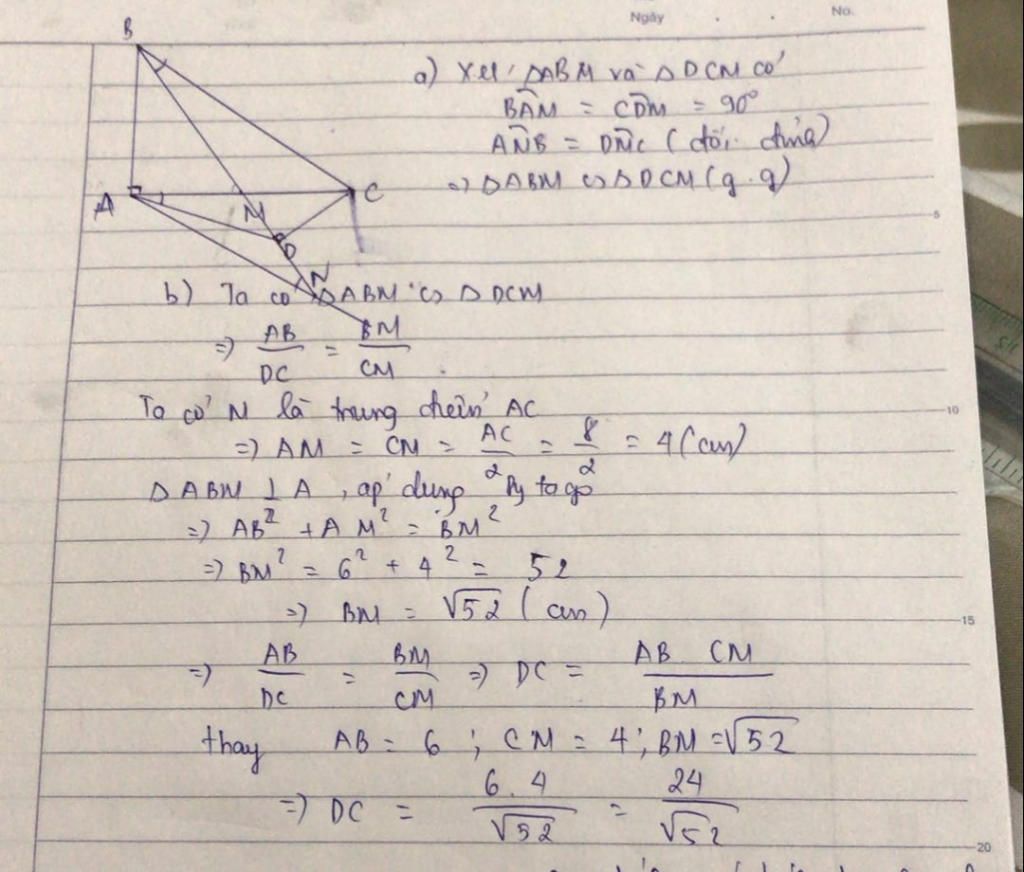 Ngày . . No.
B
A
M
C
D
N
a) Xét ΔABM và ΔDCM có
BÂM = CD̂M = 90°
AM̂B = DM̂C (đối đỉnh)
=> ΔABM ∽ ΔDCM (g.g)
5
b) Ta có ΔABM ∽ ΔDCM
=> AB/DC = BM/CM
Ta có M là trung điểm AC
10
=> AM = CM = AC/2 = 8/2 = 4 (cm)
ΔABM ⊥ A, áp dụng Py ta go
=> AB² + AM² = BM²
=> BM² = 6² + 4² = 52
=> BM = √52 (cm)
15
=> AB/DC = BM/CM => DC = AB CM/BM
thay AB = 6 ; CM = 4 ; BM = √52
=> DC = 6.4/√52 = 24/√52
20